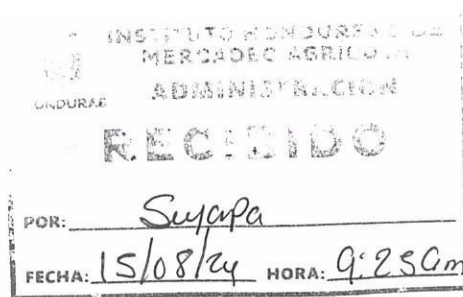 INSTITUTO HONDUREÑO DE
MERCADEO AGRICOLA
HONDURAS
ADMINISTRACION
RECIBIDO
POR: Suyapa
FECHA: 15/08/24 HORA: 9:25am